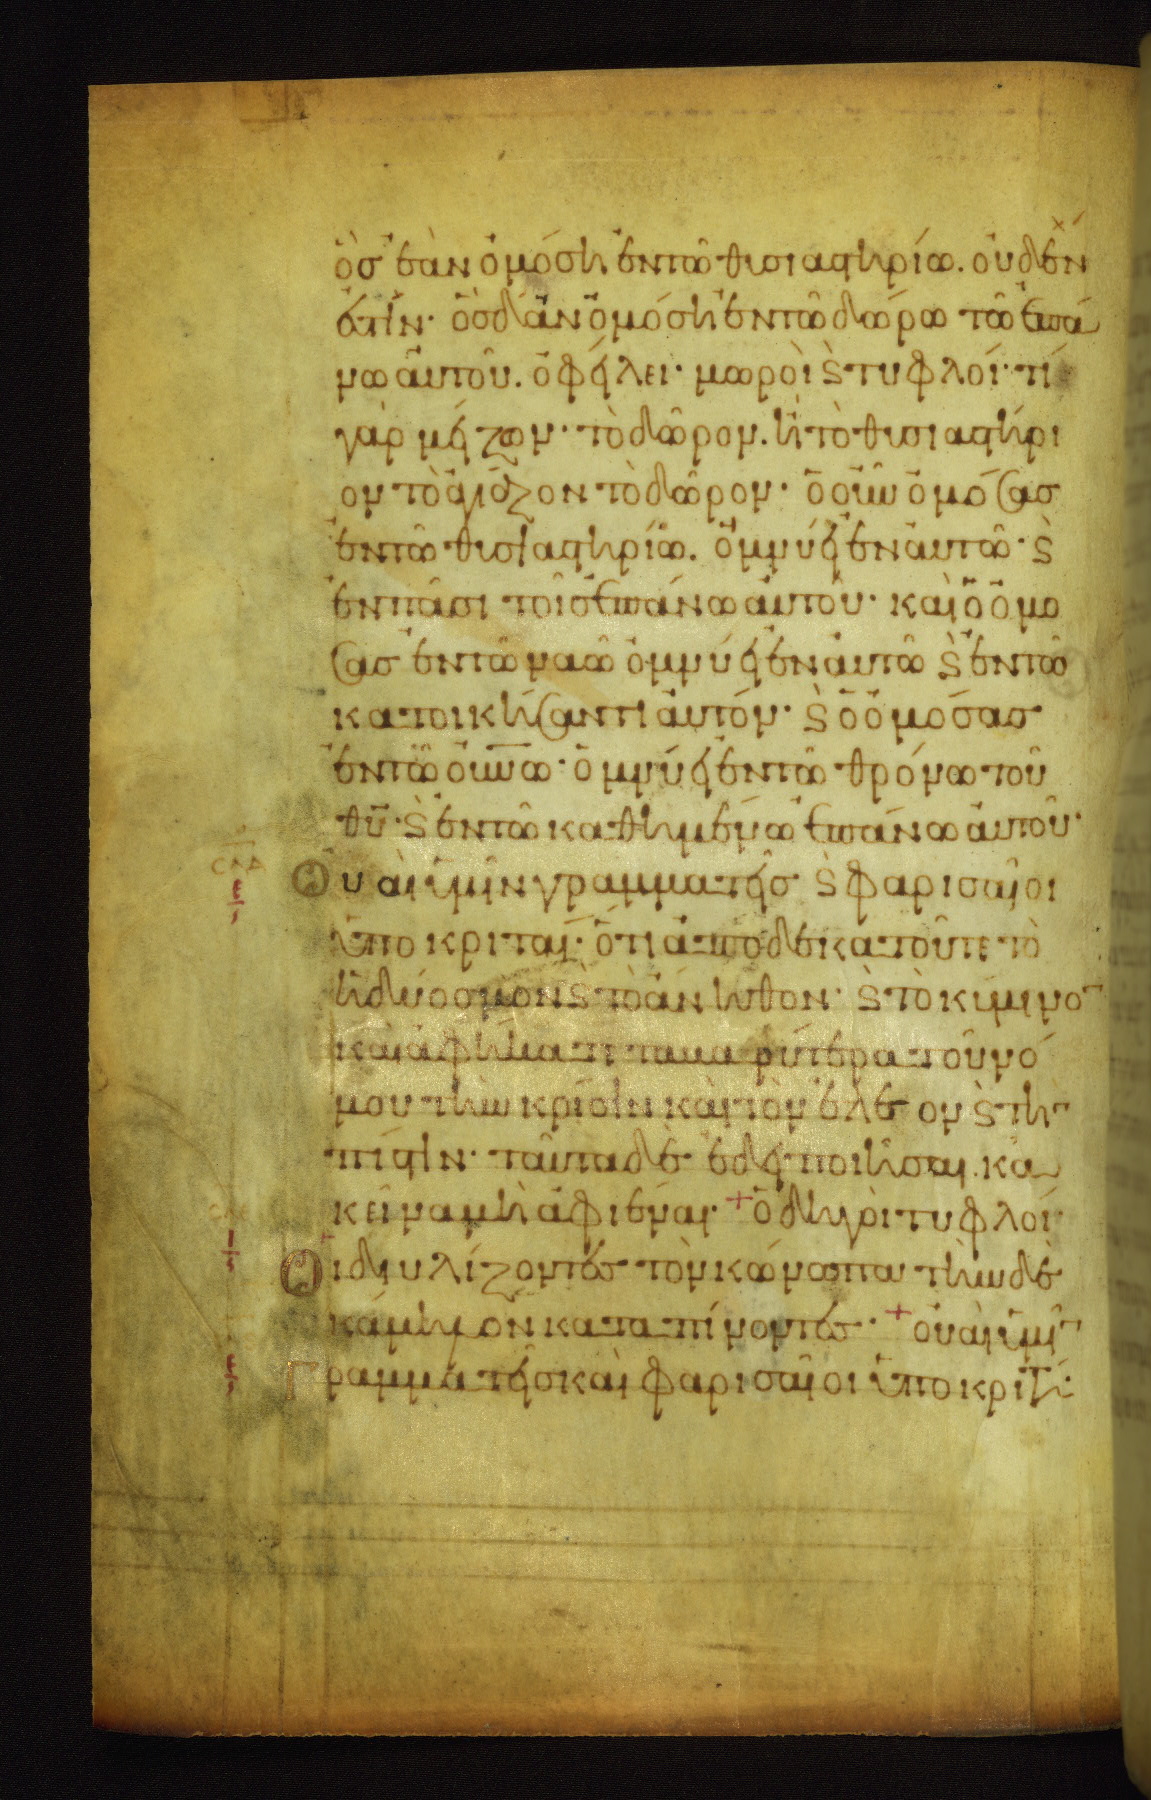 ὃσ ἐὰν ὀμόση ἐν τῶ θυσιαστηρίω. οὐδέν
ἐστιν· ὃσ δἂν ὀμόση ἐν τῶ δώρω τῶ ἐπά
νω αὐτοῦ. ὀφείλει· μωροὶ ϗ τυφλοί· τί
γὰρ μείζων· τὸ δῶρον. ἢ τὸ θυσιαστήρι
ον τὸ ἁγιάζον τὸ δῶρον· ὁ οὖν ὀμόσασ
ἐν τῶ θυσιαστηρίω. ὀμνύει ἐν αὐτῶ· ϗ
ἐν πᾶσι τοῖσ ἐπάνω αὐτοῦ· καὶ ὁ ὀμο
σασ ἐν τῶ ναῶ ὀμνύει ἐν αὐτῶ ϗ ἐν τῶ
κατοικήσαντι αὐτόν· ϗ ὁ ὀμόσασ
ἐν τῶ οὐνω· ὀμνύει ἐν τῶ θρόνω τοῦ
θυ· ϗ ἐν τῶ καθημένω ἐπάνω αὐτοῦ·
Ουαὶ ὑμῖν γραμματεῖσ ϗ φαρισαῖοι
ὑποκριταί· ὅτι ἀποδεκατοῦτε τὸ
ἡδύοσμον ϗ τὸ ἄνηθον· ϗ τὸ κύμινο
καὶ ἀφήκατε τα βαρύτερα τοῦ νό
μου τὴν κρίσιν καὶ τὸν ἔλεον ϗ τὴ
πίστιν· ταῦτα δὲ ἔδει ποιῆσαι. κἀ
κεῖνα μὴ ἀφιέναι· + ὁδηγοὶ τυφλοί·
Οι διυλίζοντεσ τὸν κώνωπα τὴν δὲ
κάμηλον καταπίνοντεσ· + οὐαὶ ὑμῖ
Γραμματεῖσ καὶ φαρισαῖοι ὑποκριταί·